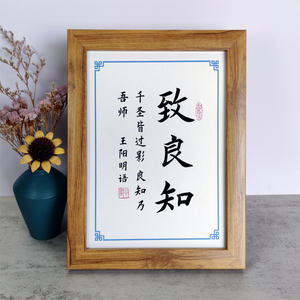 致良知
千圣皆过影良知乃
吾师 王阳明语